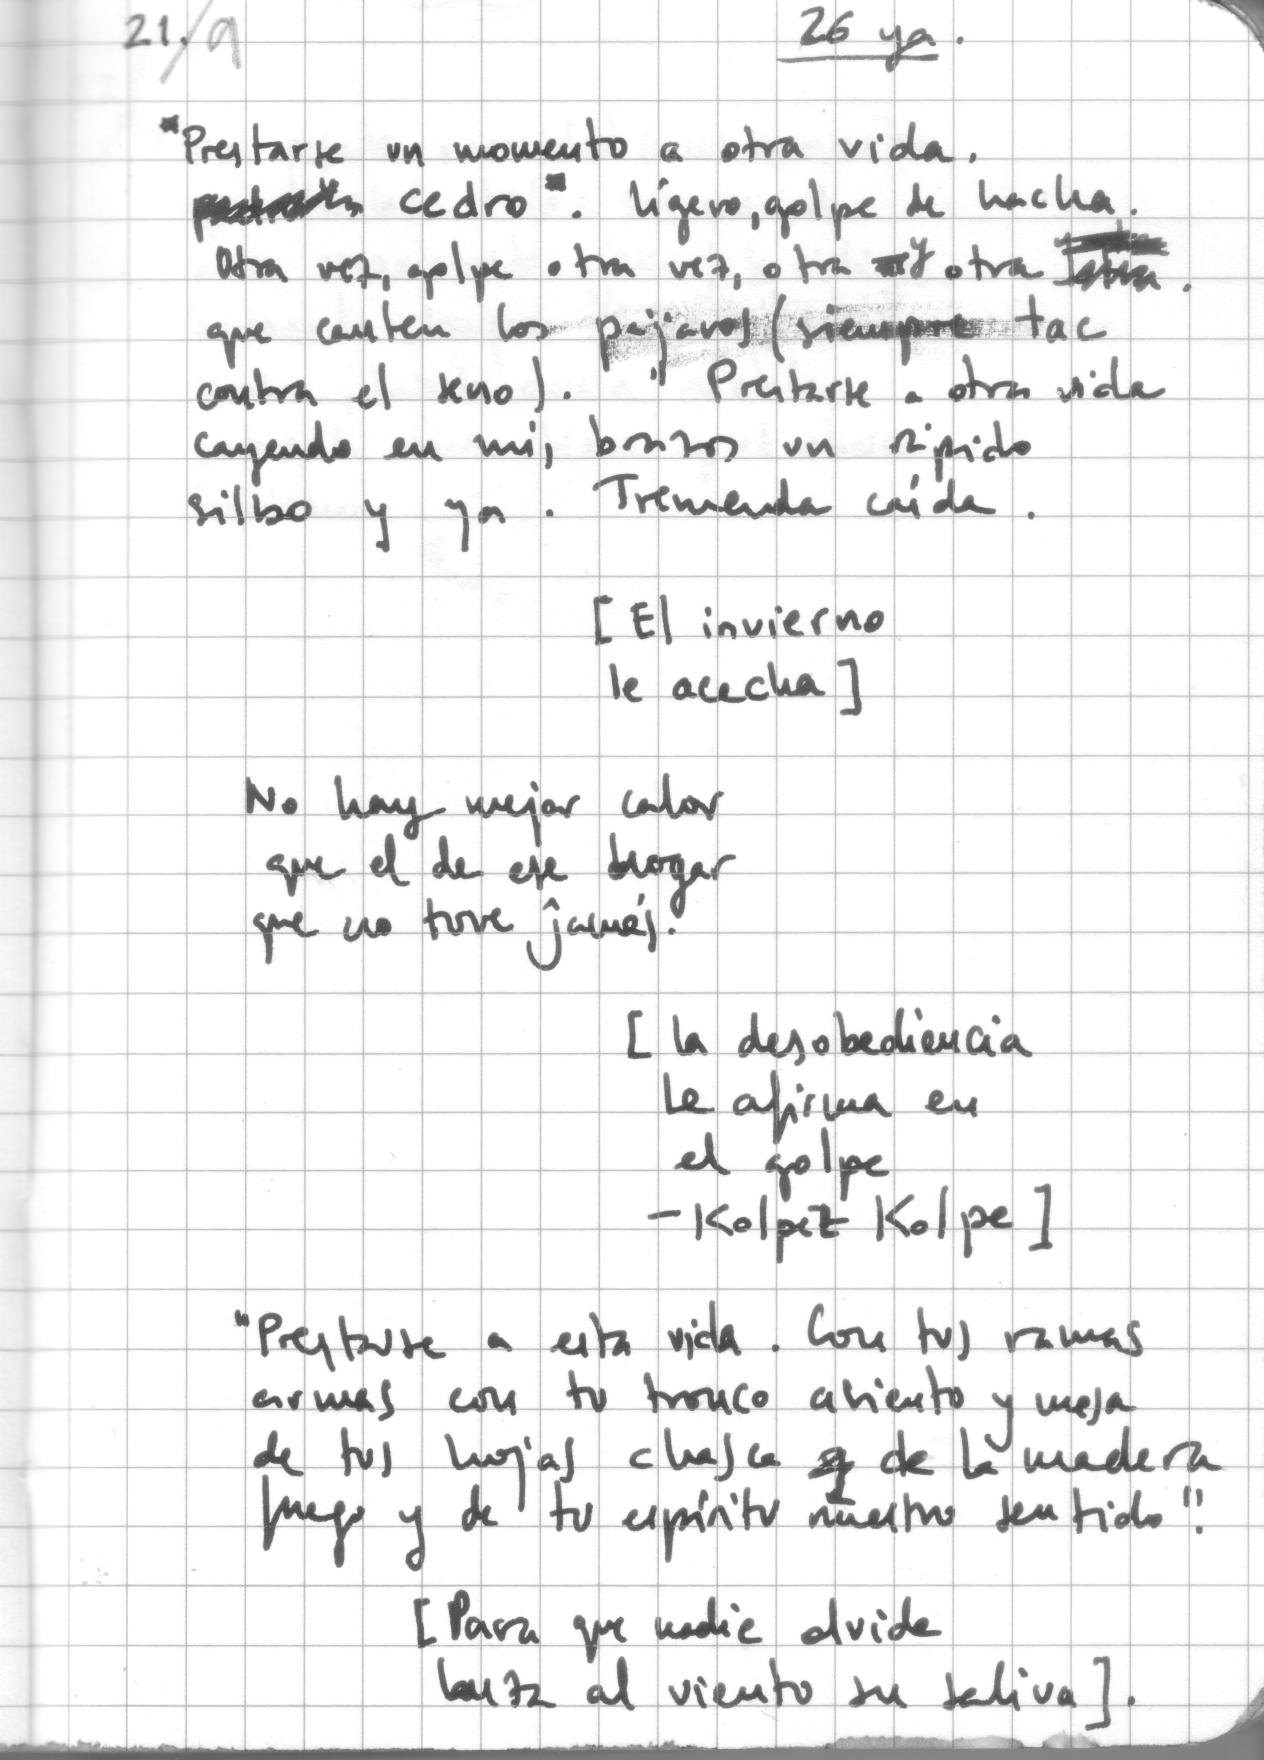 21./9
26 ya.
"Prestarse un momento a otra vida.
cedro". Ligero, golpe de hacha.
Otra vez, golpe otra vez, otra y otra
que canten los pájaros (siempre tac
contra el seno). " Prestarse a otra vida
cayendo en mi, brazos un rápido
silbo y ya. Tremenda caída.
[El invierno
le acecha]
No hay mejor calor
que el de ese hogar
que no tuve jamás.
[la desobediencia
Le afirma en
el golpe
-Kolpez Kolpe]
"Prestarse a esta vida. Con tus ramas
armas con tu tronco abierto y mesa
de tus hojas chasca de la madera
fuego y de tu espíritu nuestro sentido".
[Para que nadie olvide
lanza al viento su saliva].